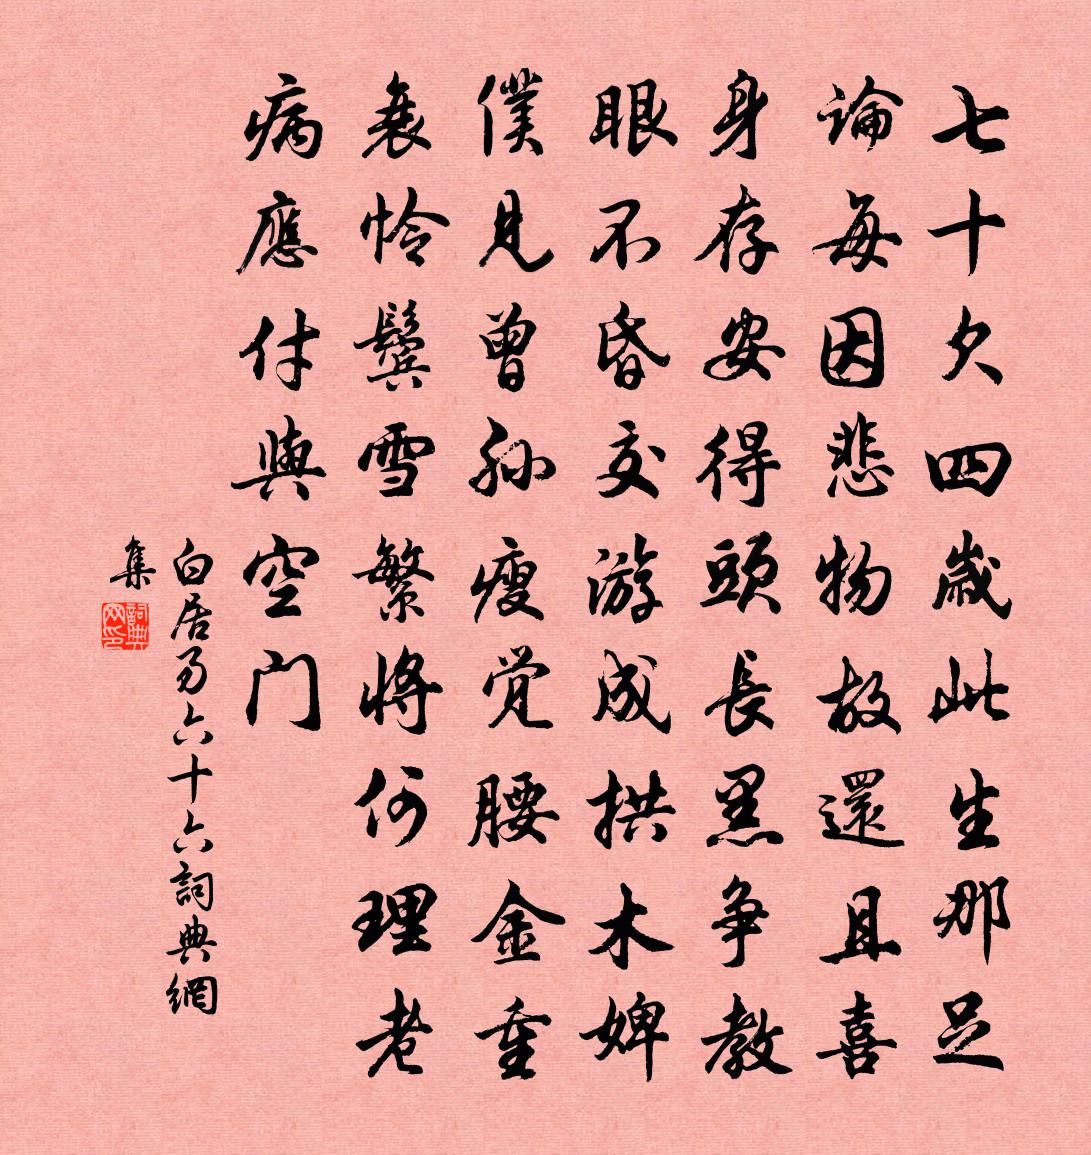 七十欠四歲此生那足
論每因悲物故還且喜
身存安得頭長黑爭教
眼不昏交游成拱木婢
僕見曾孙瘦觉腰金重
衰怜鬓雪繁將何理老
病應付與空门
白居易六十六詞典網
集
詞典网印